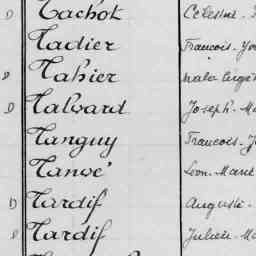 D Tachot Célestin
Tadier François-
D Tahier
D Talvard Joseph-Ma
Tanguy François-J
Tanoé Léon-Marie
D Tardif Auguste-
D Tardif Julien-M